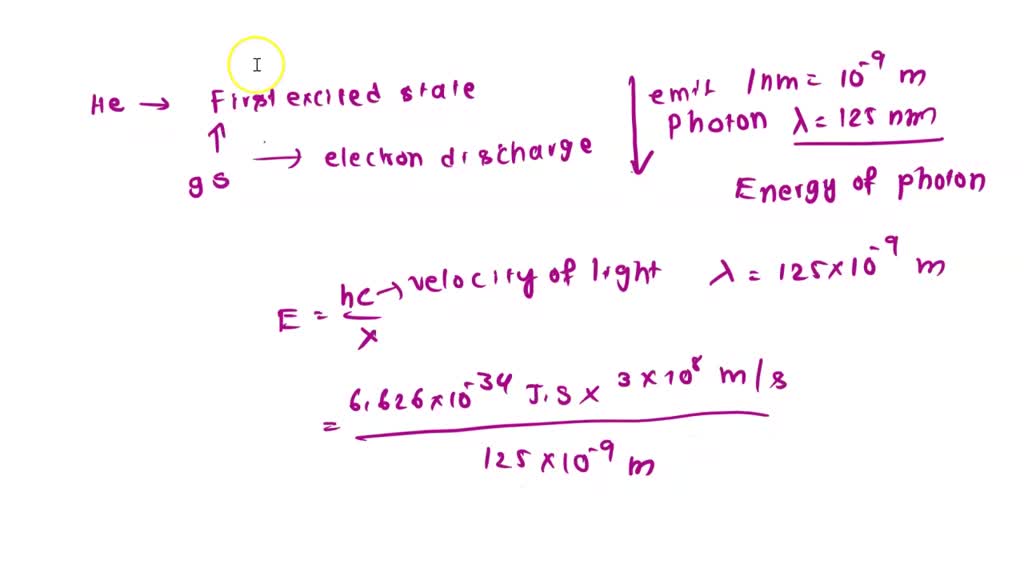 He → First excited state
↑
gs → electron discharge
emit 1nm = 10⁻⁹ m
photon λ = 125 nm
Energy of photon
E = hc → velocity of light
x
λ = 125×10⁻⁹ m
= 6.626×10⁻³⁴ J.S × 3×10⁸ m/s
125×10⁻⁹ m